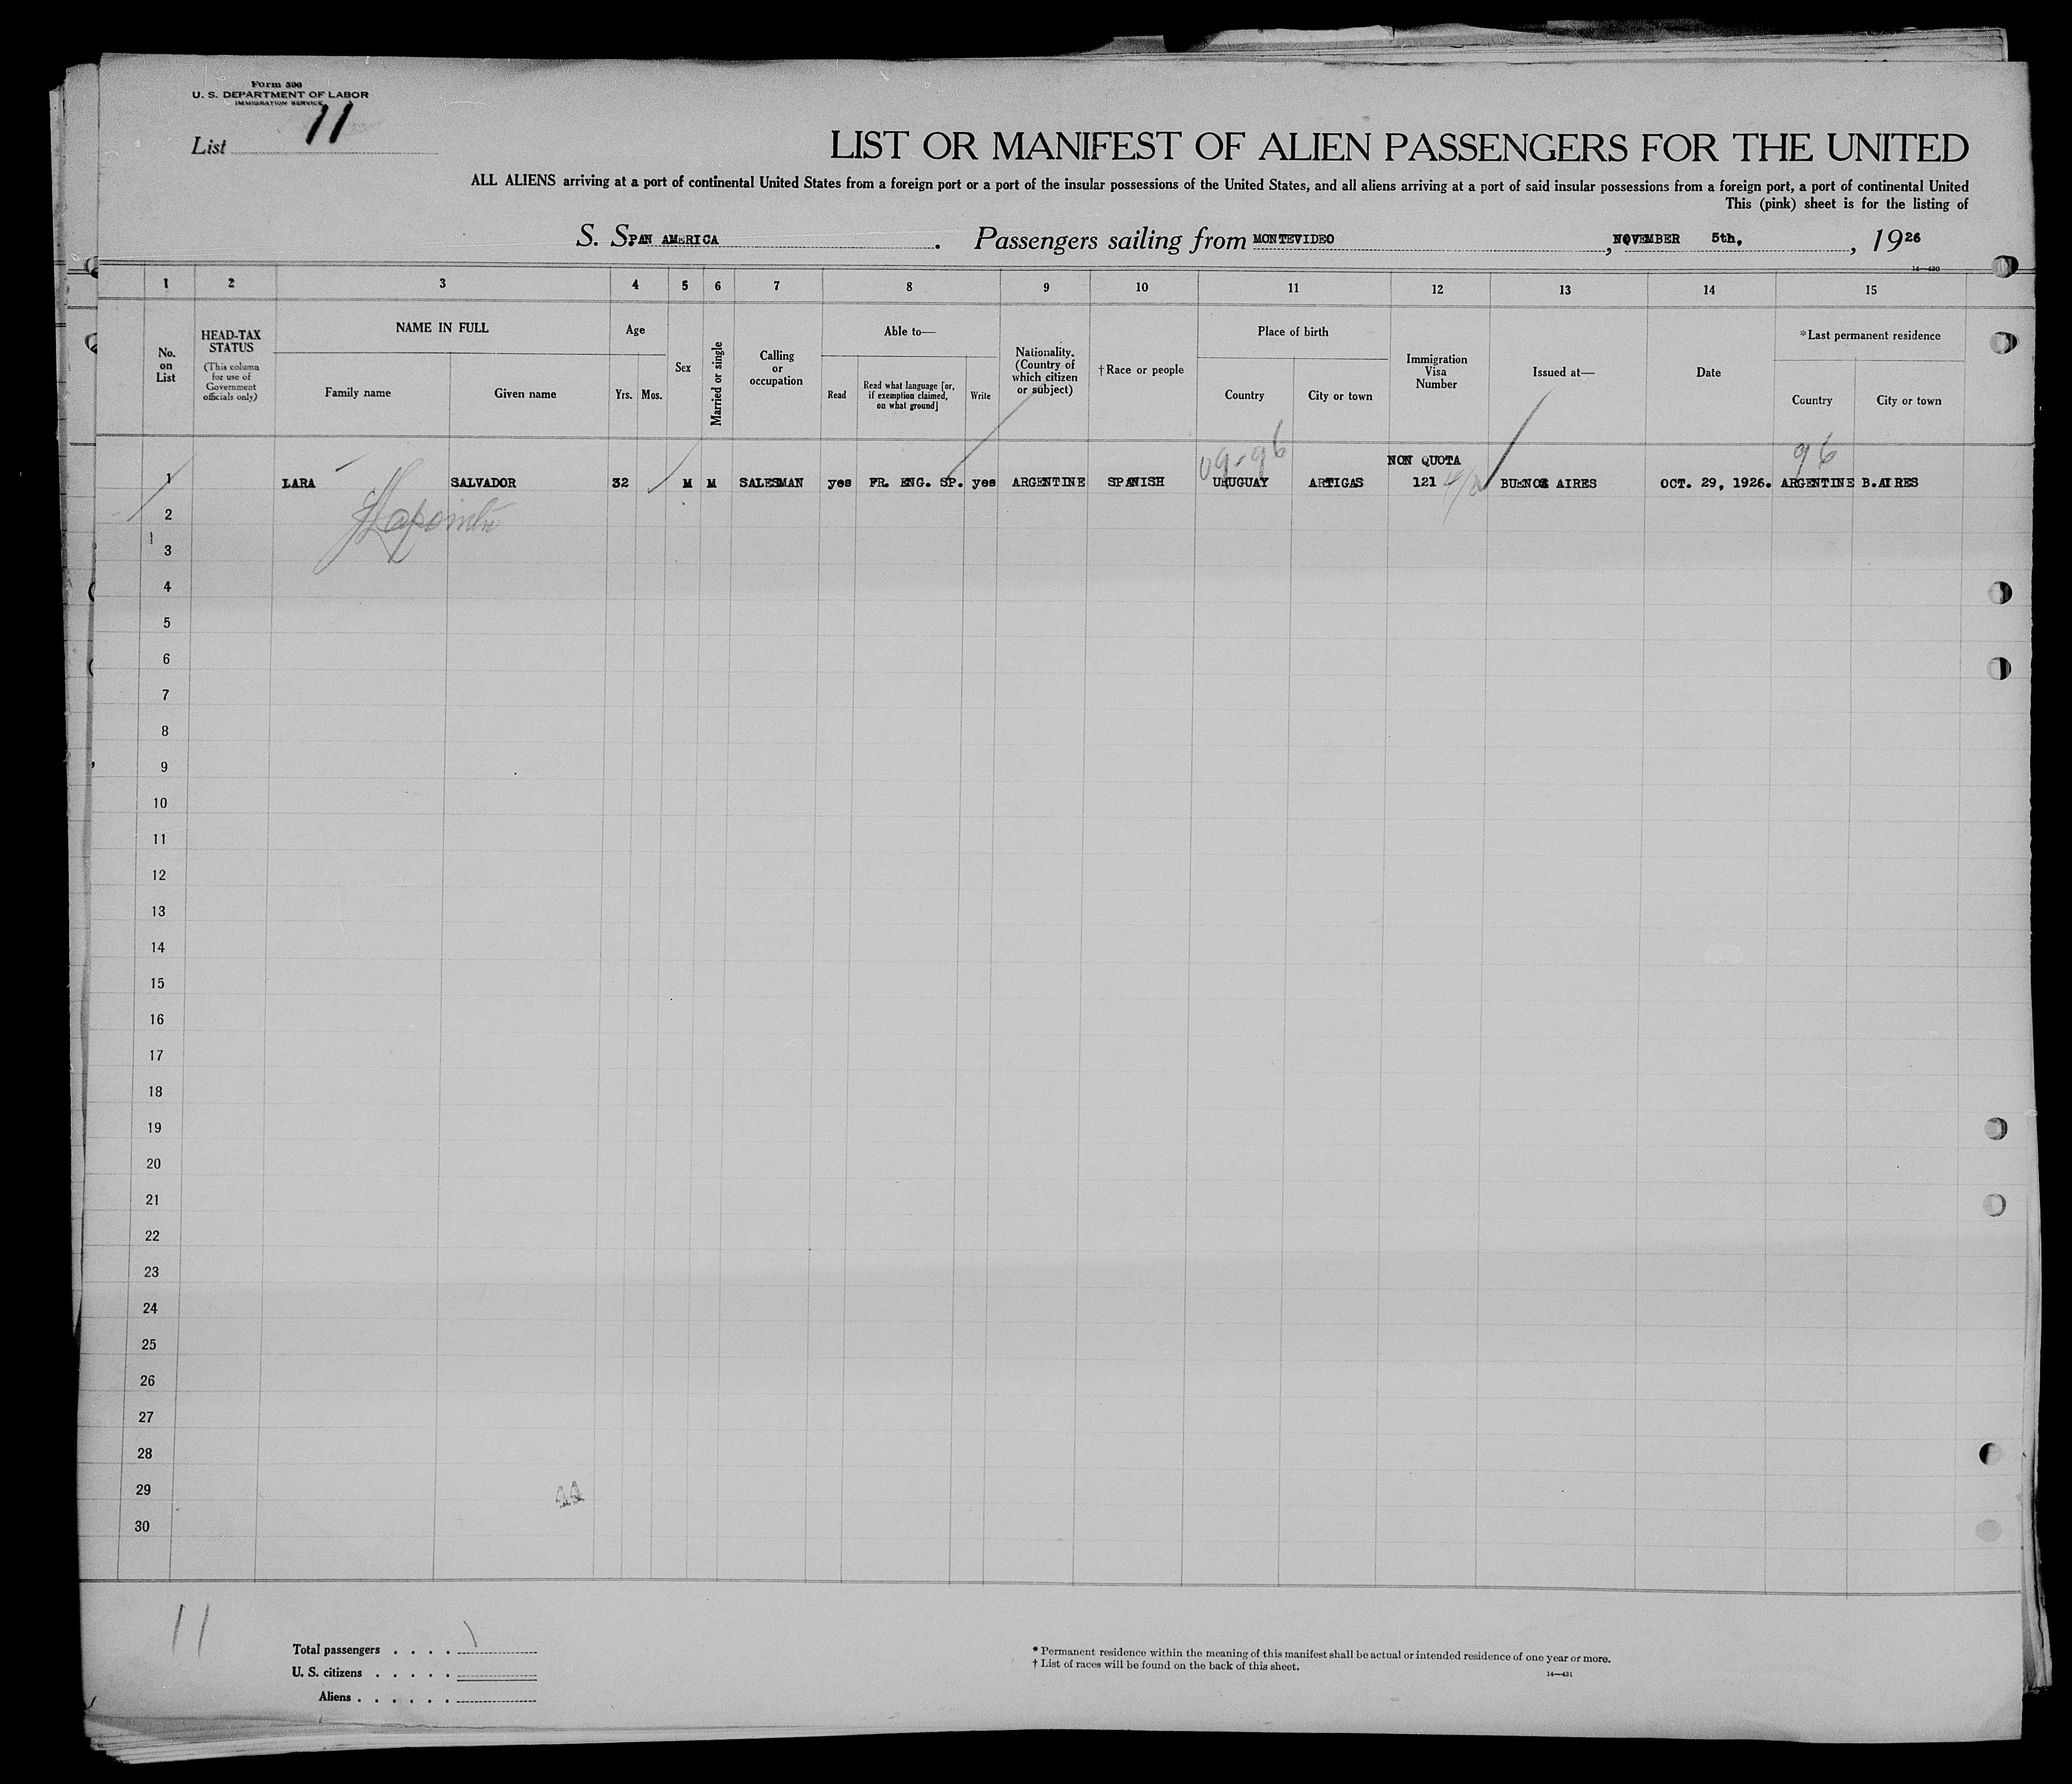 Form 500
U. S. DEPARTMENT OF LABOR
IMMIGRATION SERVICE
List 11
LIST OR MANIFEST OF ALIEN PASSENGERS FOR THE UNITED
ALL ALIENS arriving at a port of continental United States from a foreign port or a port of the insular possessions of the United States, and all aliens arriving at a port of said insular possessions from a foreign port, a port of continental United
This (pink) sheet is for the listing of
S. S. PAN AMERICA. Passengers sailing from MONTEVIDEO, NOVEMBER 5th, , 1926
14—430
1 2 3 4 5 6 7 8 9 10 11 12 13 14 15
No. on List
HEAD-TAX STATUS
(This column for use of Government officials only)
NAME IN FULL
Family name
Given name
Age
Yrs. Mos.
Sex
Married or single
Calling or occupation
Able to—
Read
Read what language [or, if exemption claimed, on what ground]
Write
Nationality. (Country of which citizen or subject)
†Race or people
Place of birth
Country
City or town
Immigration Visa Number
Issued at—
Date
*Last permanent residence
Country
City or town
09-96
NON QUOTA
96
1 LARA SALVADOR 32 M M SALESMAN yes FR. ENG. SP. yes ARGENTINE SPANISH URUGUAY ARTIGAS 121 BUENOS AIRES OCT. 29, 1926. ARGENTINE B.AIRES
2
3
4
5
6
7
8
9
10
11
12
13
14
15
16
17
18
19
20
21
22
23
24
25
26
27
28
29
44
30
11
Total passengers . . . .
U. S. citizens . . . . .
Aliens . . . . . .
* Permanent residence within the meaning of this manifest shall be actual or intended residence of one year or more.
† List of races will be found on the back of this sheet.
14—431